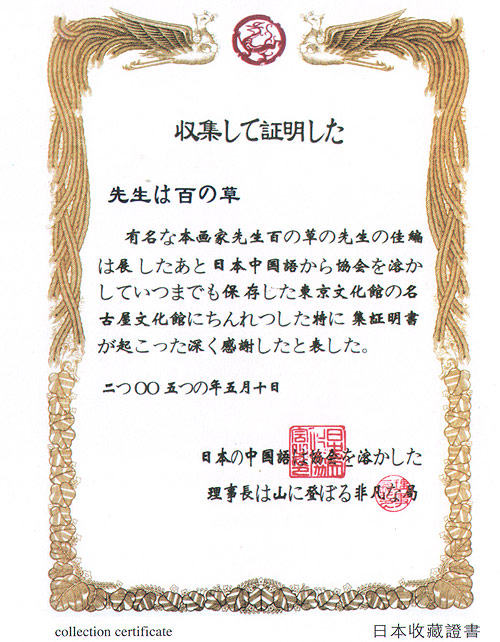 収集して証明した
先生は百の草
有名な本画家先生百の草の先生の佳編
は展したあと日本中国語から協会を溶か
していつまでも保存じた東京文化館の名
古屋文化館にちんれつした特に集証明書
が起こった深く感謝したと表した。
二つ〇〇五つの年五月十日
日本の中国語は協会を溶かした
理事長は山に登ぼる非凡な局
collection certificate
日本收藏證書